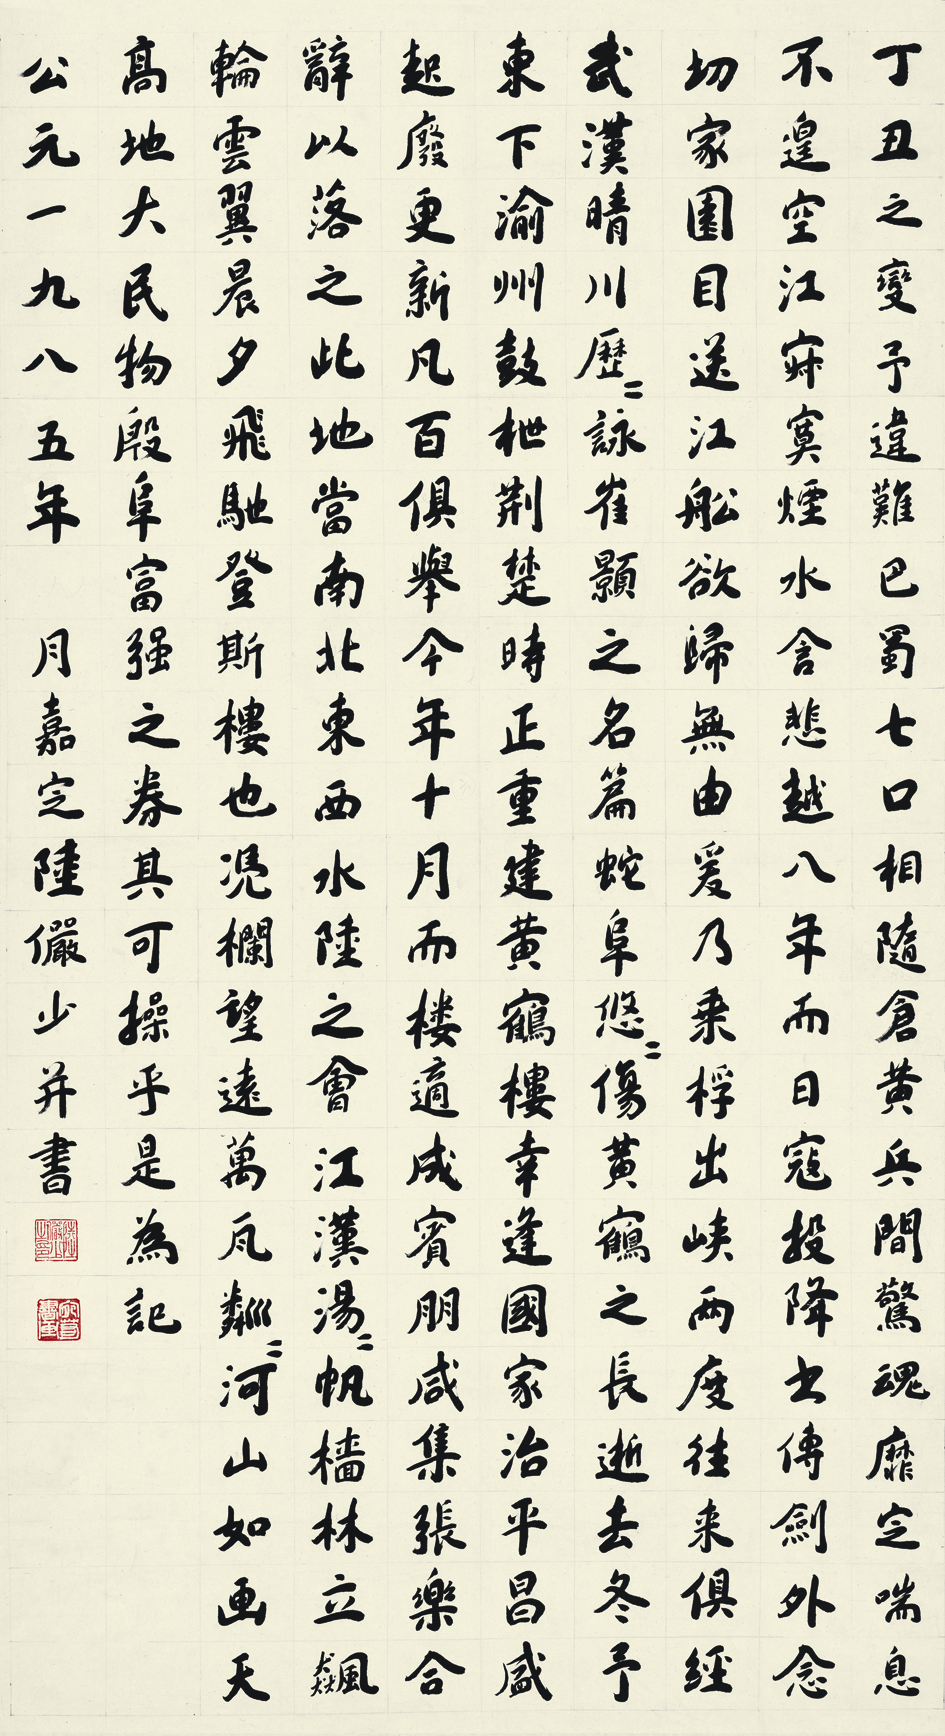 丁丑之變予違難巴蜀七口相隨倉黄兵間驚魂靡定喘息
不遑空江寂寞煙水含悲越八年而日寇投降书傳劍外念
切家園目送江船欲歸無由爰乃乗桴出峽两度往来俱經
武漢晴川歷〻詠崔顥之名篇蛇阜悠〻傷黄鶴之長逝去冬予
東下渝州鼓枻荆楚時正重建黄鶴樓幸逢國家治平昌盛
起廢更新凡百俱舉今年十月而楼適成賓朋咸集張樂合
辭以落之此地當南北東西水陸之會江漢湯〻帆檣林立飆
輪雲翼晨夕飛馳登斯樓也凴欄望遠萬瓦粼〻河山如画天
髙地大民物殷阜富强之券其可操乎是為記
公元一九八五年 月嘉定陸儼少并書